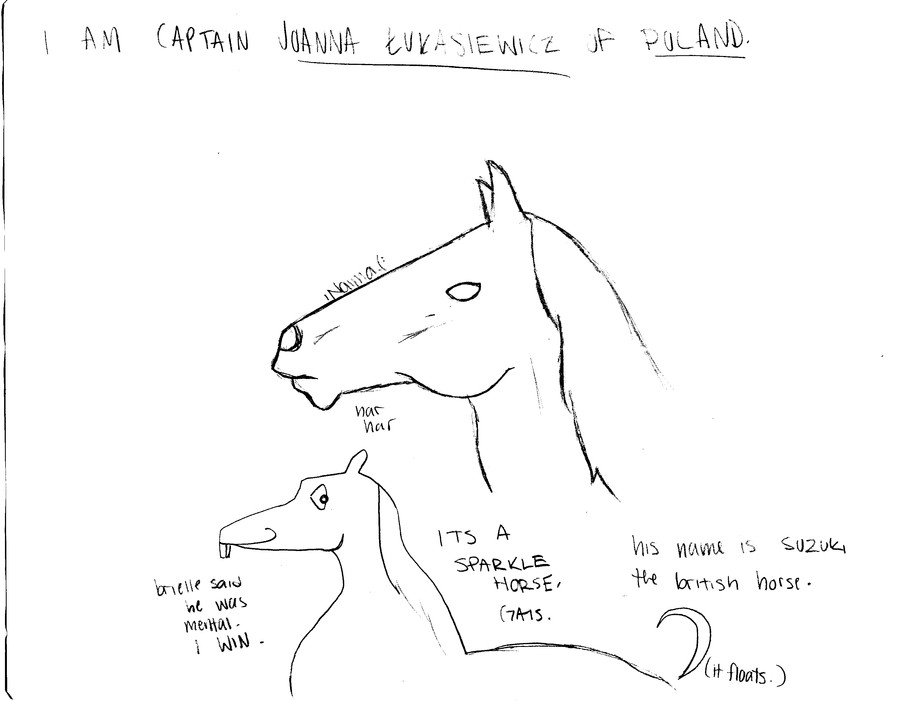 I AM CAPTAIN JOANNA ŁUKASIEWICZ OF POLAND.
har
har
ITS A
SPARKLE
HORSE.
his name is SUZUKI
the british horse.
brielle said
he was
mental.
I WIN.
(it floats.)